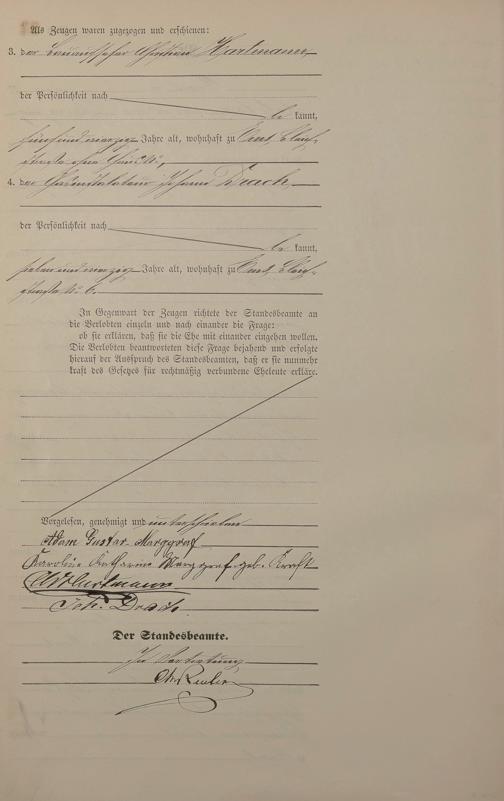 Als Zeugen waren zugezogen und erschienen:
3. der Christian Hartmann,
der Persönlichkeit nach
be kannt,
fünfundvierzig Jahre alt, wohnhaft zu
straße ohne
4. der Johann Drach,
der Persönlichkeit nach
be kannt,
siebenundvierzig Jahre alt, wohnhaft zu
straße № 6.
In Gegenwart der Zeugen richtete der Standesbeamte an
die Verlobten einzeln und nach einander die Frage:
ob sie erklären, daß sie die Ehe mit einander eingehen wollen.
Die Verlobten beantworteten diese Frage bejahend und erfolgte
hierauf der Ausspruch des Standesbeamten, daß er sie nunmehr
kraft des Gesetzes für rechtmäßig verbundene Eheleute erkläre.
Vorgelesen, genehmigt und unterschrieben
Adam Gustav Marggraf
Karoline Katharine Marggraf geb. Kraft
Hartmann
Joh. Drach
Der Standesbeamte.
In Vertretung